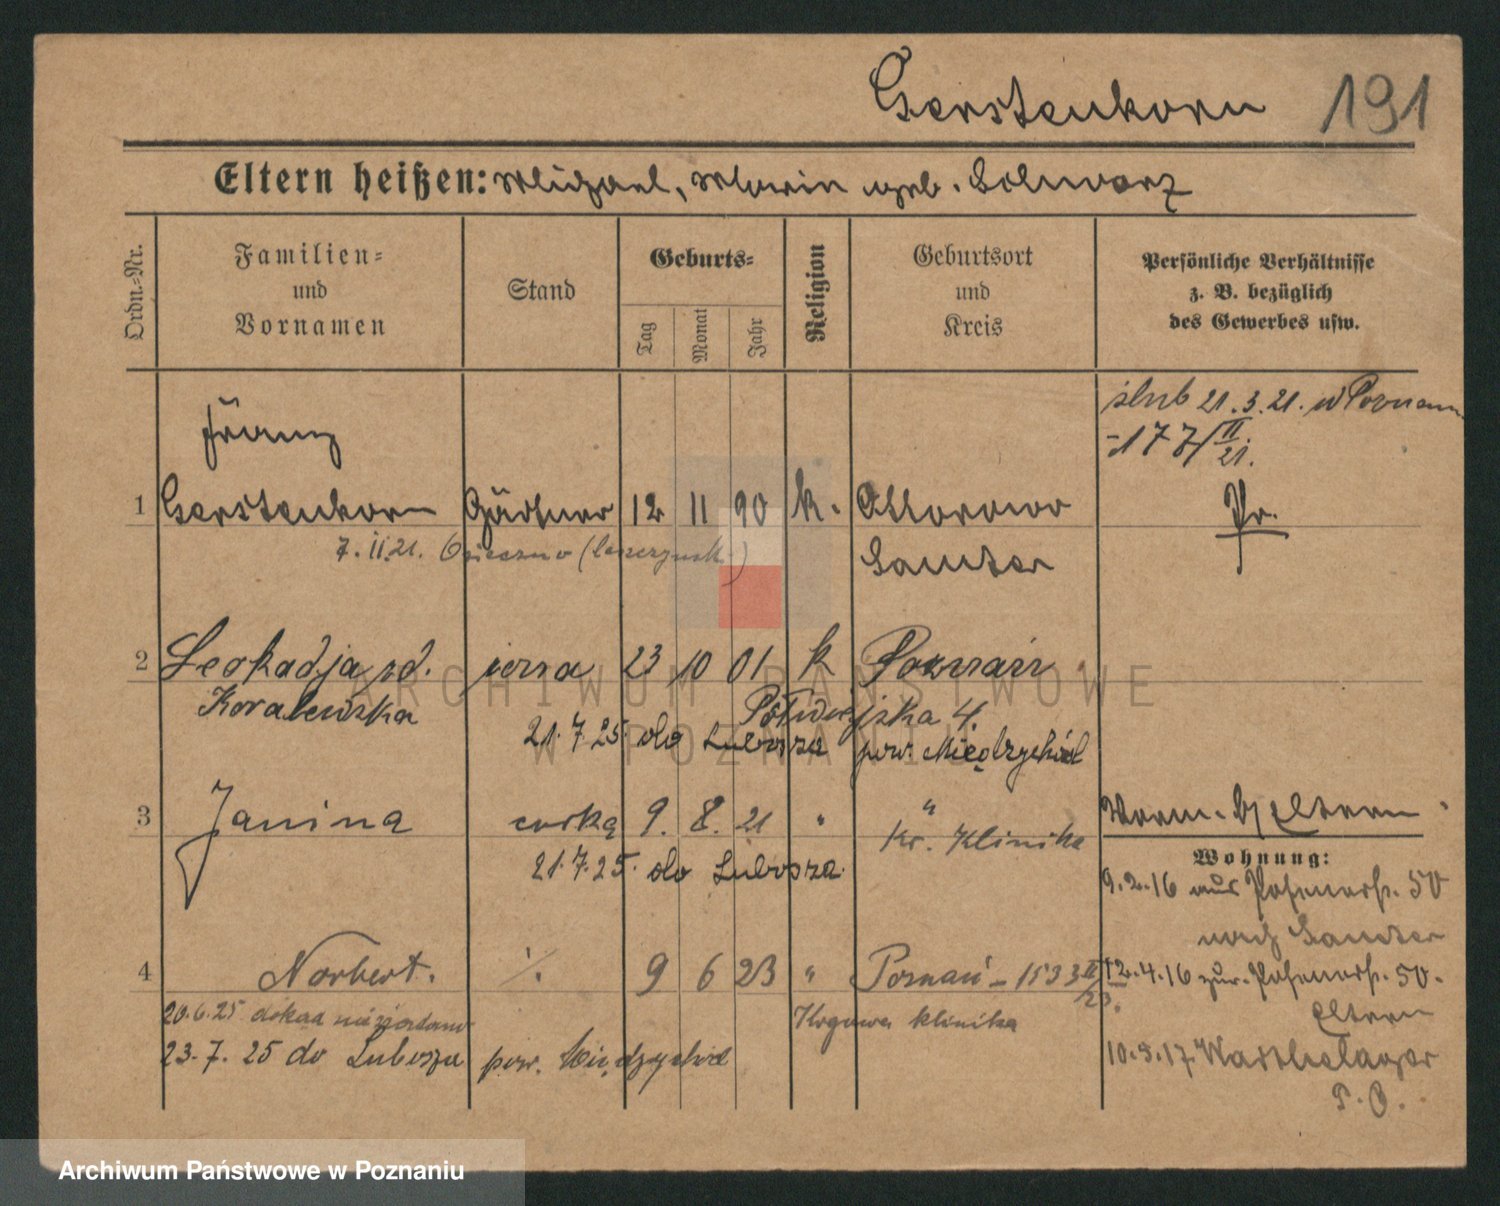 Gerstenkorn 191
Eltern heißen: Michael, Marie geb. Schwarz
Ordn.-Nr.
Familien-
und
Vornamen
Stand
Geburts-
Tag
Monat
Jahr
Religion
Geburtsort
und
Kreis
Persönliche Verhältnisse
z. B. bezüglich
des Gewerbes usw.
ślub 21.3.21. w Poznaniu
177/II
21.
Franz
1 Gerstenkorn Gärtner 12 11 90 k. Ottorowo Pr.
7.11.21.
Samter
2 Leokadja od. żona 23 10 01 k Poznań
Kowalewska
Półwiejska 4.
21.7.25. do Lubosza pow. Międzychód
3 Janina córka 9. 8. 21 " "
Kr. Klinika
Vorm. b/ Eltern
21.7.25. do Lubosza
Wohnung:
9.2.16 aus Posenerstr. 50
nach Samter
4 Norbert. ·/. 9 6 23 " Poznań - 1533 II
23.
12.4.16 zur. Posenerstr. 50.
Eltern
20.6.25 dokąd niewiadomo
Krajowa klinika
23.7.25 do Lubosza pow. Międzychód
10.5.17 Warthelager
P. O.
ARCHIWUM PAŃSTWOWE
W POZNANIU
Archiwum Państwowe w Poznaniu